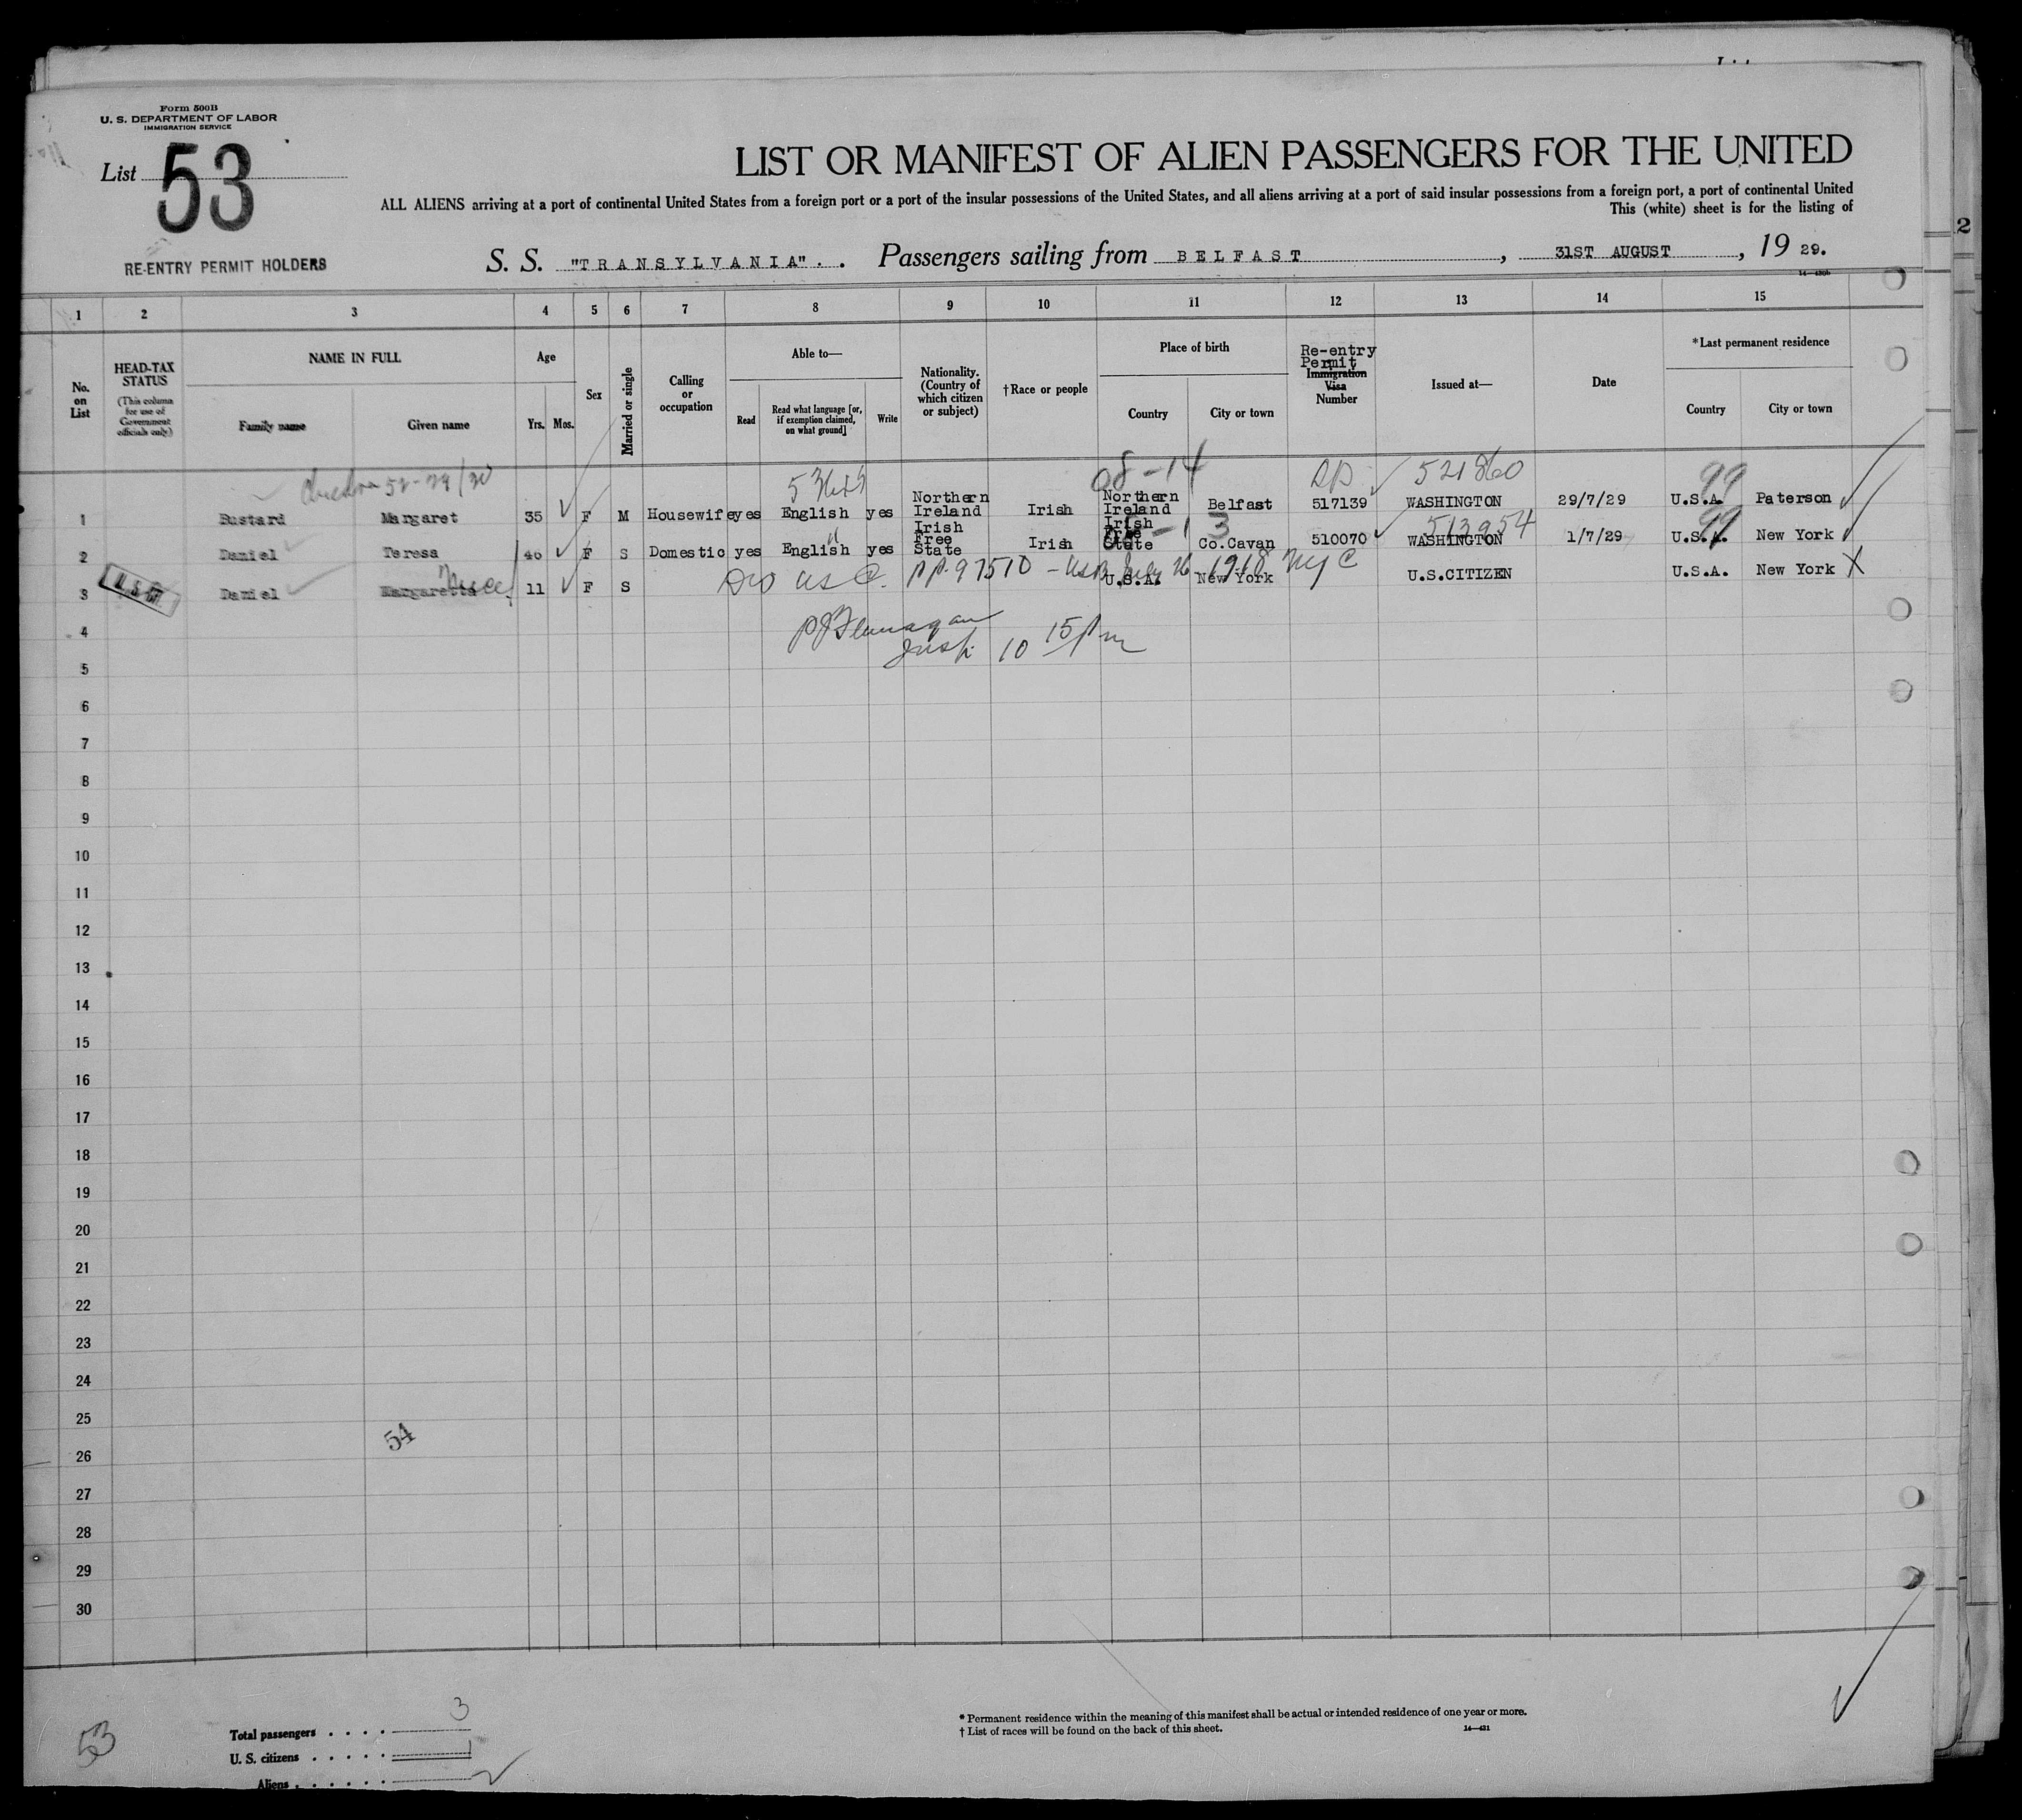 Form 500B
U. S. DEPARTMENT OF LABOR
IMMIGRATION SERVICE
List 53
LIST OR MANIFEST OF ALIEN PASSENGERS FOR THE UNITED
ALL ALIENS arriving at a port of continental United States from a foreign port or a port of the insular possessions of the United States, and all aliens arriving at a port of said insular possessions from a foreign port, a port of continental United
This (white) sheet is for the listing of
RE-ENTRY PERMIT HOLDERS
S. S. "TRANSYLVANIA". . Passengers sailing from BELFAST, 31ST AUGUST, 19 29.
2
1 2 3 4 5 6 7 8 9 10 11 12 13 14 15
No. on List
HEAD-TAX STATUS
(This column for use of Government officials only)
NAME IN FULL
Family name
Given name
Age
Yrs. Mos.
Sex
Married or single
Calling or occupation
Able to—
Read
Read what language [or, if exemption claimed, on what ground]
Write
Nationality. (Country of which citizen or subject)
†Race or people
Place of birth
Country
City or town
Re-entry Permit
Immigration Visa Number
Issued at—
Date
*Last permanent residence
Country
City or town
08-14 521860 99
1 Bustard Margaret 35 F M Housewife yes English yes Northern Ireland Irish Northern Ireland Belfast 517139 WASHINGTON 29/7/29 U.S.A. Paterson
513954 99
2 Daniel Teresa 46 F S Domestic yes English yes Irish Free State Irish Irish Free State Co.Cavan 510070 WASHINGTON 1/7/29 U.S.A. New York
3 Daniel Margaretta niece 11 F S U.S.A. New York U.S.CITIZEN U.S.A. New York X
USC PP.97510 - July 26 1918 NYC
PJ Flanagan
Insp. 10 15 pm
4
5
6
7
8
9
10
11
12
13
14
15
16
17
18
19
20
21
22
23
24
25
54
26
27
28
29
30
53
Total passengers . . . . 3
U. S. citizens . . . . . 1
Aliens . . . . . .
* Permanent residence within the meaning of this manifest shall be actual or intended residence of one year or more.
† List of races will be found on the back of this sheet.
14—431